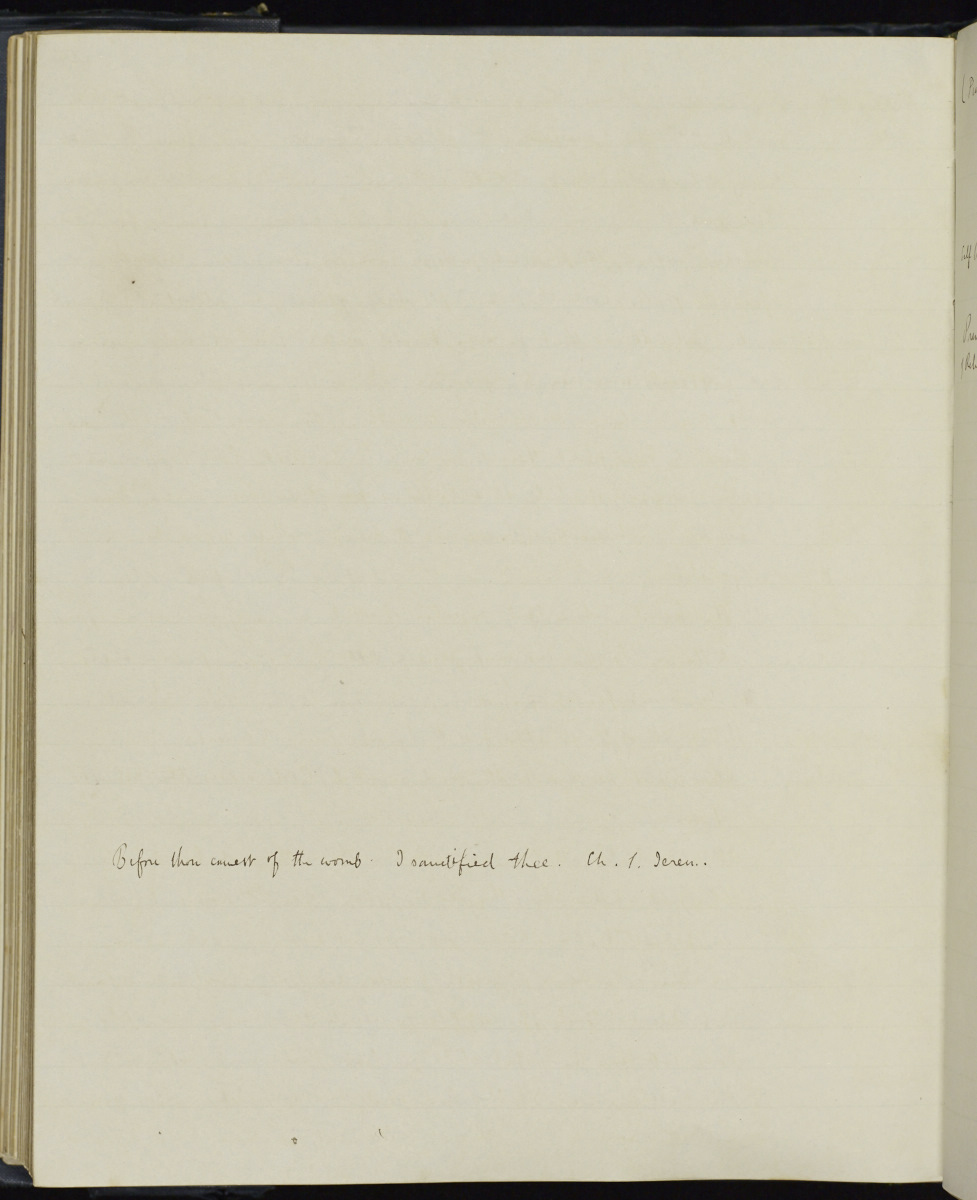 Before thou camest of the womb. I sanctified thee. Ch. 1. Jerem.